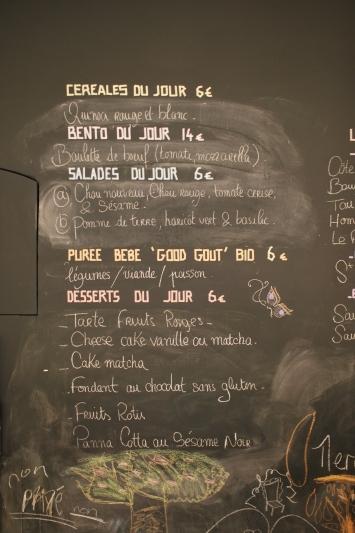 CEREALES DU JOUR 6€
Quinoa rouge et blanc.
BENTO DU JOUR 14€
Boulette de bœuf (tomate, mozzarella)
SALADES DU JOUR 6€
ⓐ Chou nouveau, Chou rouge, tomate cerise,
& Sésame.
ⓑ Pomme de terre, haricot vert & basilic.
PUREE BEBE 'GOOD GOUT' BIO 6€
légumes / viande / poisson.
DESSERTS DU JOUR 6€
_Tarte Fruits Rouges_
_Cheese cake vanille ou matcha.
_Cake matcha
_Fondant au chocolat sans gluten.
_Fruits
Panna Cotta au Sésame Noir
non
PRIVÉ
non
L
Côte
Bou
Tou
Hom
Le
Sau
Sau